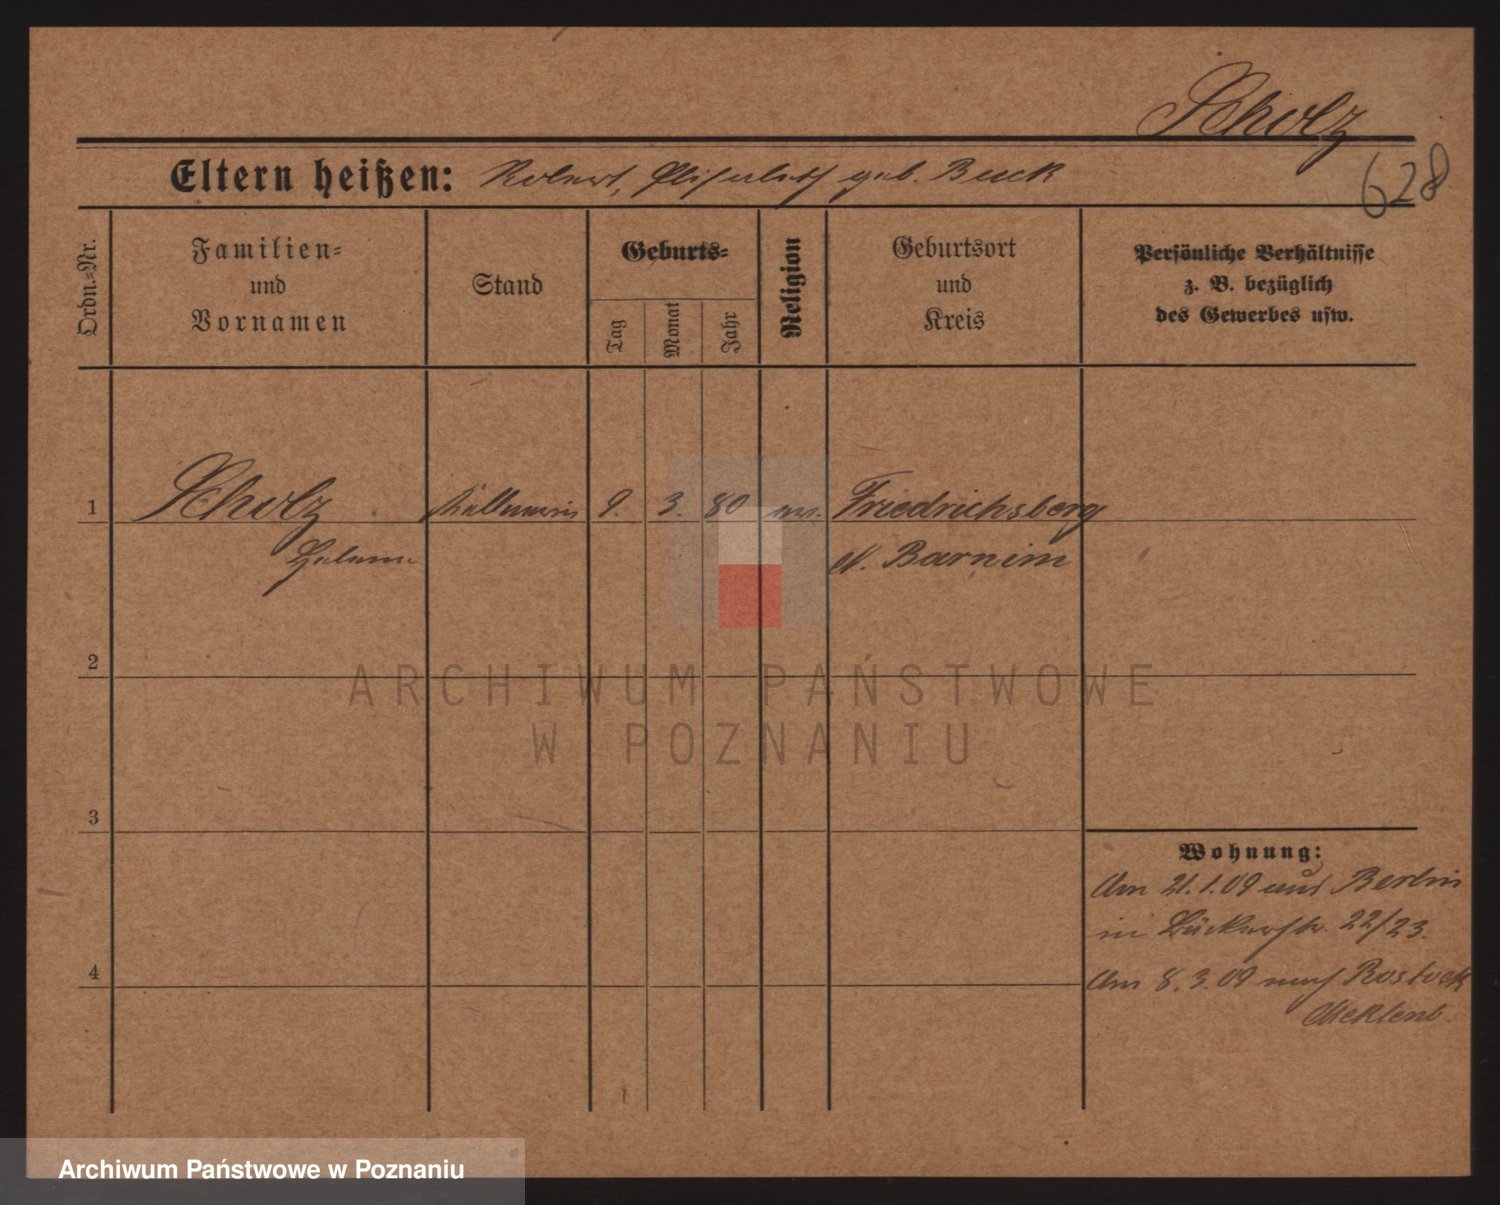 Scholz
628
Eltern heißen: Robert, Elisabeth geb. Buck
Ordn.=Nr.
Familien=
und
Vornamen
Stand
Geburts=
Tag
Monat
Jahr
Religion
Geburtsort
und
Kreis
Persönliche Verhältnisse
z. B. bezüglich
des Gewerbes usw.
1
Scholz
Helene
Kellnerin
9. 3. 80
ev.
Friedrichsberg
N. Barnim
2
ARCHIWUM PAŃSTWOWE
W POZNANIU
3
4
Wohnung:
Am 21.1.09 aus Berlin
in Bäckerstr. 22/23.
Am 8.3.09 nach Rostock
Meklenb.
Archiwum Państwowe w Poznaniu